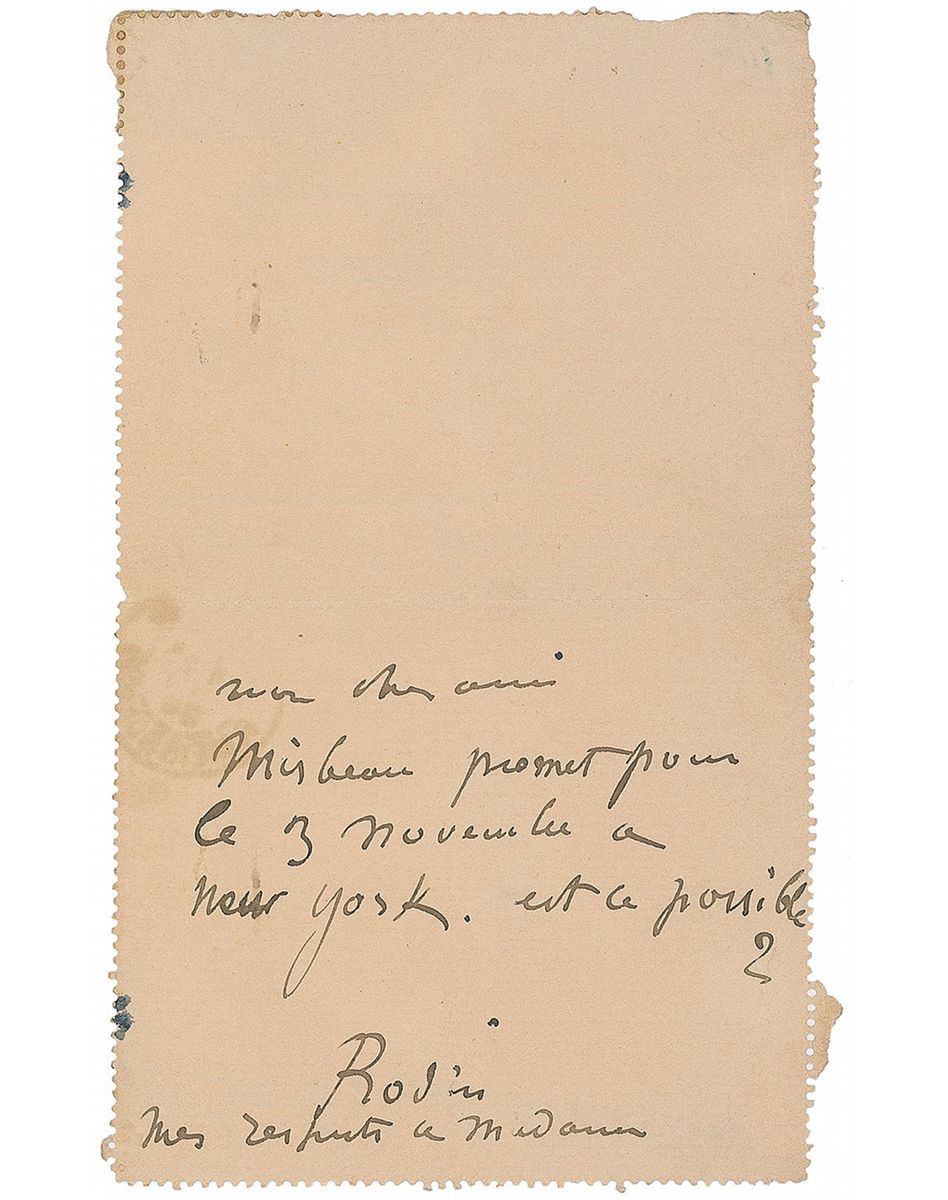 mon cher ami
Mirbeau promet pour
le 3 novembre a
New york. est ce possible
?
Rodin
Mes respects a Madame